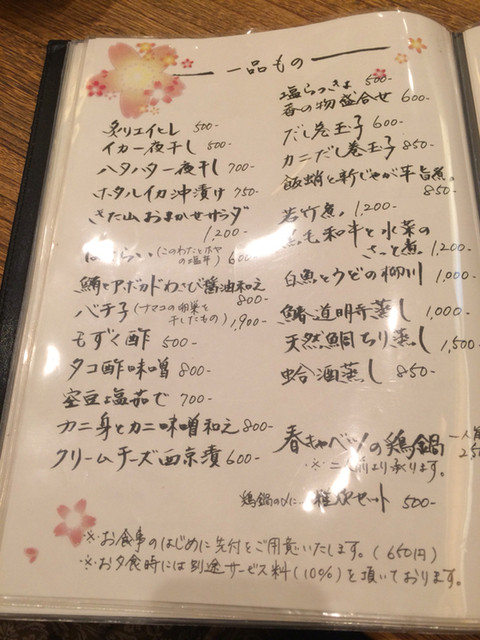 一品もの
炙りエイヒレ 500-
イカ一夜干し 800-
ハタハタ一夜干し 700-
ホタルイカ沖漬け 750-
きた山おまかせサラダ
1,200-
ばくらい(このわたとホヤの塩辛) 600-
鮪とアボカドわさび醤油和え
800-
バチ子(ナマコの卵巣を干したもの) 1,900-
もずく酢 500-
タコ酢味噌 800-
空豆塩茹で 700-
カニ身とカニ味噌和え 800-
クリームチーズ西京漬 600-
塩らっきょ 500-
香の物盛合せ 600-
だし巻玉子 600-
カニだし巻玉子 850-
飯蛸と新じゃが平旨煮
850-
若竹煮 1,200-
黒毛和牛と水菜の
さっと煮 1,200-
白魚とうどの柳川 1,000-
鰆道明寺蒸し 1,000-
天然鯛ちり蒸し 1,500-
蛤酒蒸し 850-
春キャベツの鶏鍋 一人前
※二人前より承ります。
鶏鍋の〆に 雑炊セット 500-
※お食事のはじめに先付をご用意いたします。(650円)
※お夕食時には別途サービス料(10%)を頂いております。